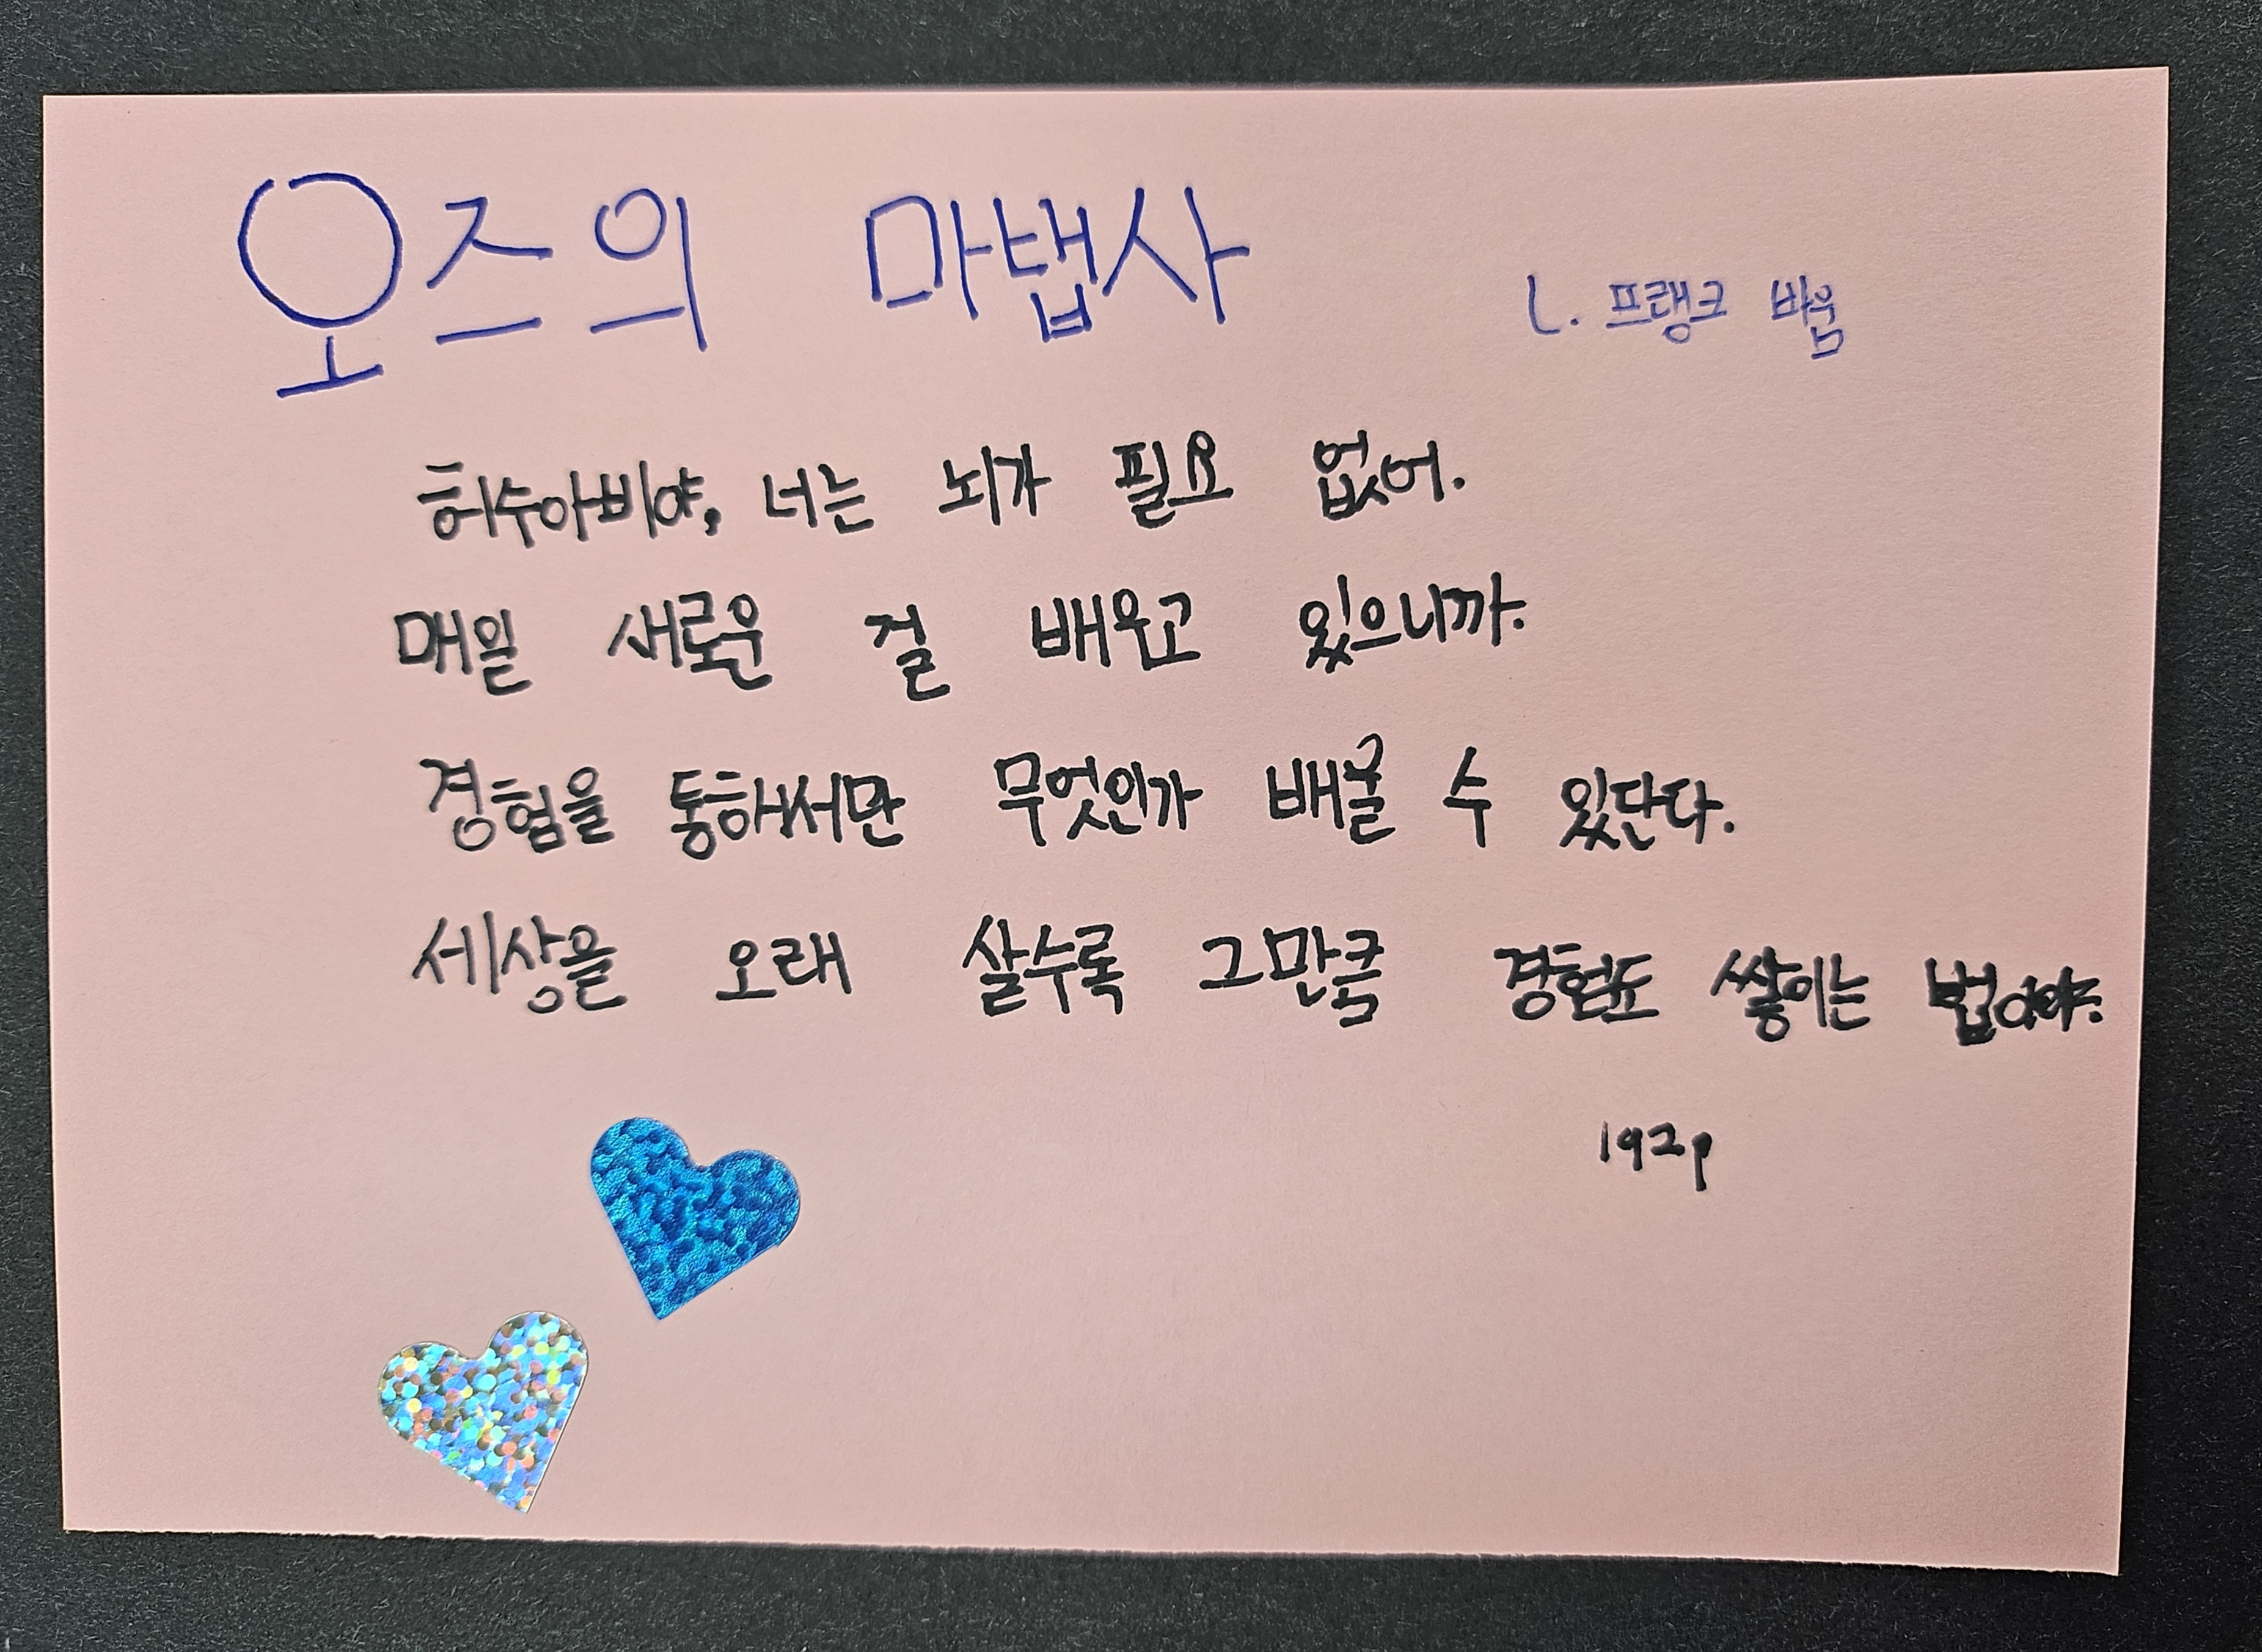 오즈의 마법사
L. 프랭크 바움
허수아비야, 너는 뇌가 필요 없어.
매일 새로운 걸 배우고 있으니까.
경험을 통해서만 무엇인가 배울 수 있단다.
세상을 오래 살수록 그만큼 경험도 쌓이는 법이야.
192p